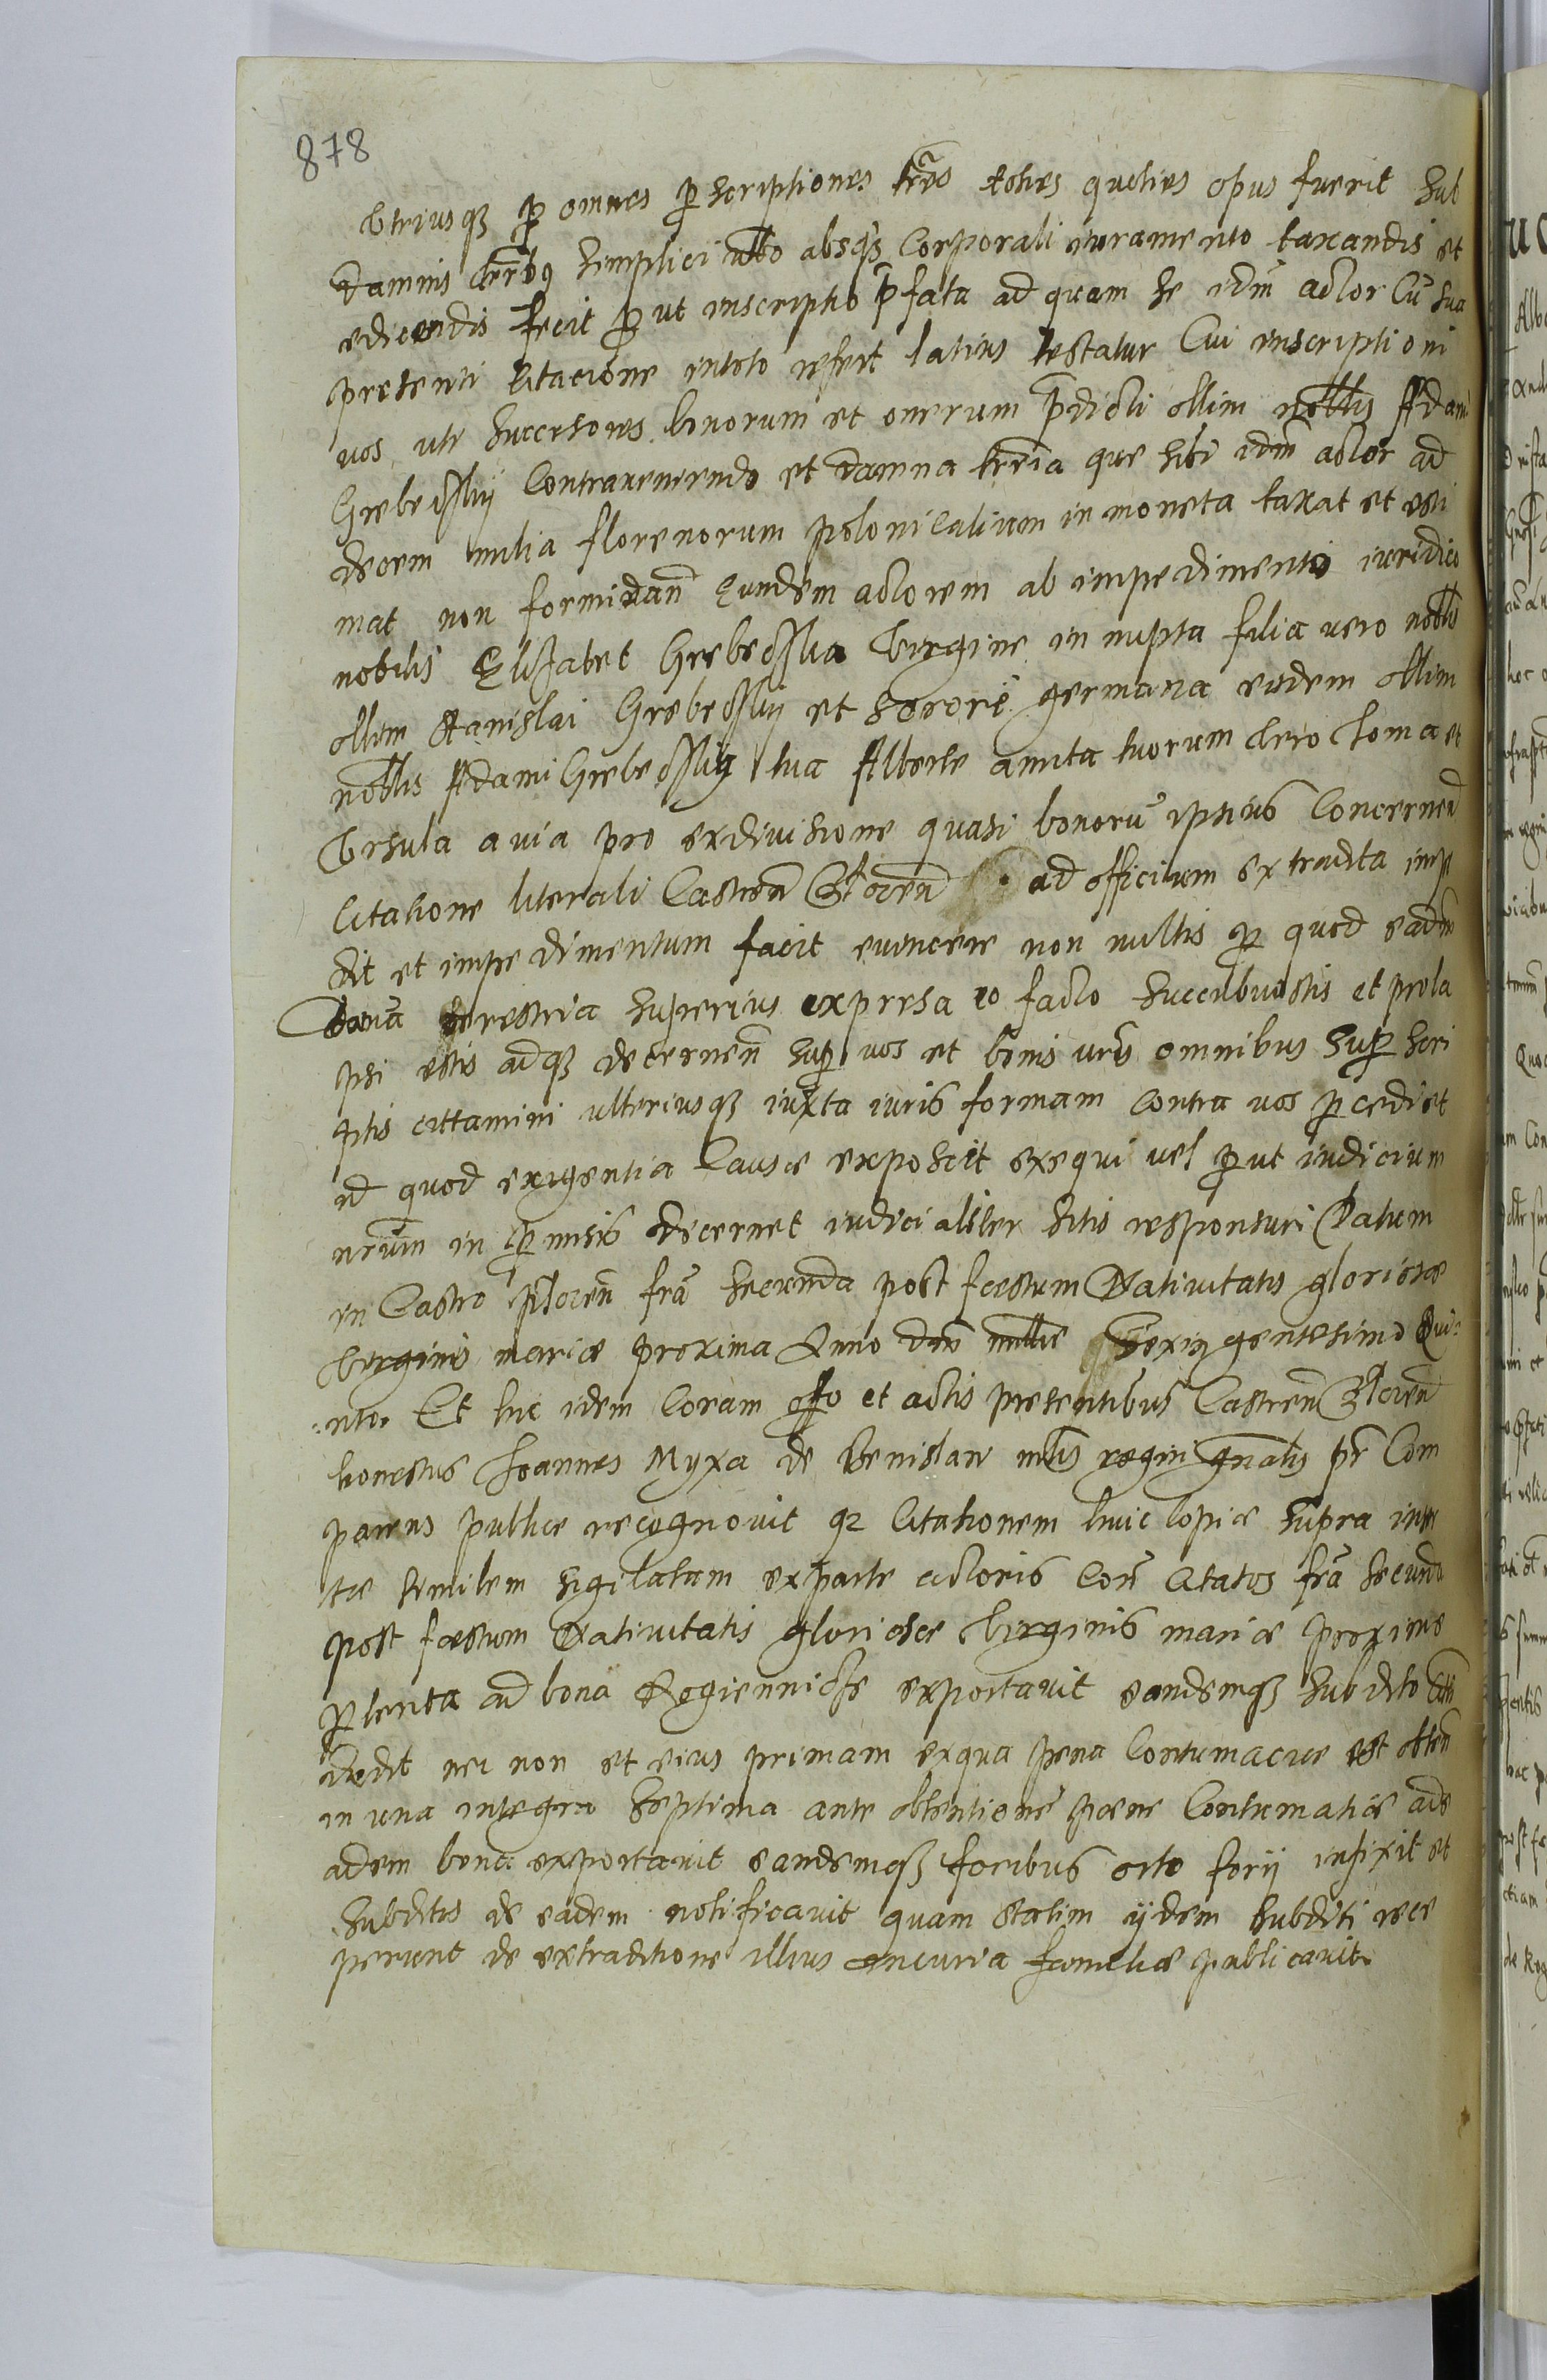 878
Utriusqꝫ ꝑ omnes ꝑscriptiones trēs toties quoties opus fuerit sub
damnis terrībꝯ simplici vbo absqꝫ Corporali iuramento taxandis et
edicendis fecit ꝓ ut inscriptio p̄fata ad quam se idm̄ actor cū sua
presenti Citacione in toto refert latius testatur Cui inscriptioni
vos uti succesores bonorum et onerum p̄dicti ollim nobllis Adami
Grebeczkij Contraveniendo et damna terria que sibi idm̄ actor ad
decem milia florenorum polonicalium in moneta taxat et esti
mat non formidan̄ Eundem actorem ab impedimento iuridico
nobilis Elizabet Grebeczka Virgine in nupta filia vero nobllis
ollim Stanislai Grebeczkij et sorore germana eiusdem ollim
nobllis Adami Grebeczkij tua Alberte amita tuorum vero Thoma et
Vrsula avia pro exdivisione quasi bonorū ipsius Concernen̄
Citatione literali Castren̄ Plocen̄ ad officium extradita impe
dit et impedimentum facit evincere non vultis ꝓ quod eadm̄
Dam̄a terrestria superius expressa eo facto succubuistis et prola
psi estis adqꝫ decernen̄ suꝑ vos et bonis vrīs omnibus suꝑ scri
ptis cittamini ulteriusqꝫ iuxta iuris formam contra vos ꝓcedi et
id quod exigentia causæ exposcit exequi vel ꝓ ut iudicium
nrūm in p̄misis decernet iudicialiter sitis responsuri Datum
in Castro Plocen̄ frā secunda post foestum Nativitatis gloriosæ
Virginis mariæ proxima Anno dnī millē sexingentesimo Qui:
:nto. Et hic idem Coram offo et actis presentibus Castren̄ Plocen̄
honestus Joannes Myxa de Benislaw mlis regni gnālis pr̄ Com
parens publice recognovit qꝫ Citationem huic copiæ supra inser
tæ similem sigilatam ex parte actoris Con̄ Citatos frā secunda
post foestum Nativitatis gloriosæ Virginis mariæ proxime
ꝑterita ad bona exportavit eandemqꝫ subdito
dedit nec non et eius primam ex qua pena Contumaciæ est obten̄
in una integra septima ante obtentionē poene Contumatiæ ad e
adem bona exportavit eandemqꝫ foribus infixit et
subditis de eadem notificavit quam statim ijdem subditi rece
perunt de extraditione illius in curia familiæ publicavit.